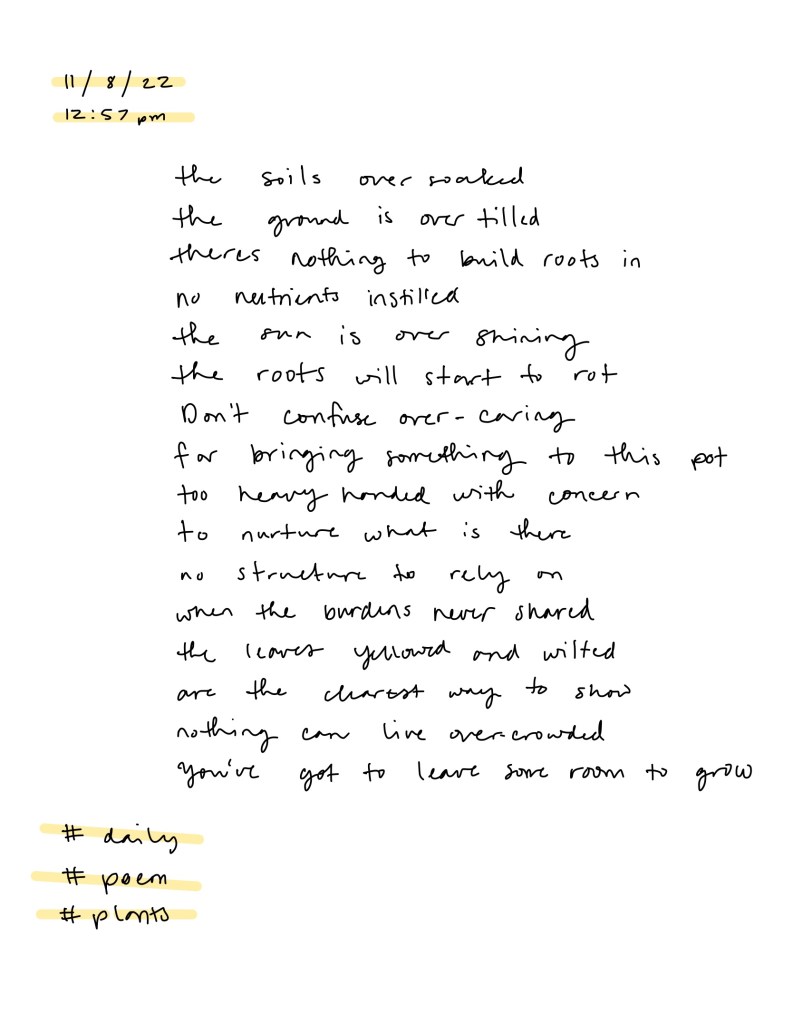 11/8/22
12:57 pm
the soils over soaked
the ground is over tilled
theres nothing to build roots in
no nutrients instilled
the sun is over shining
the roots will start to rot
Don't confuse over-caring
for bringing something to this pot
too heavy handed with concern
to nurture what is there
no structure to rely on
when the burdens never shared
the leaves yellowed and wilted
are the clearest way to show
nothing can live over-crowded
you've got to leave some room to grow
# daily
# poem
# plants